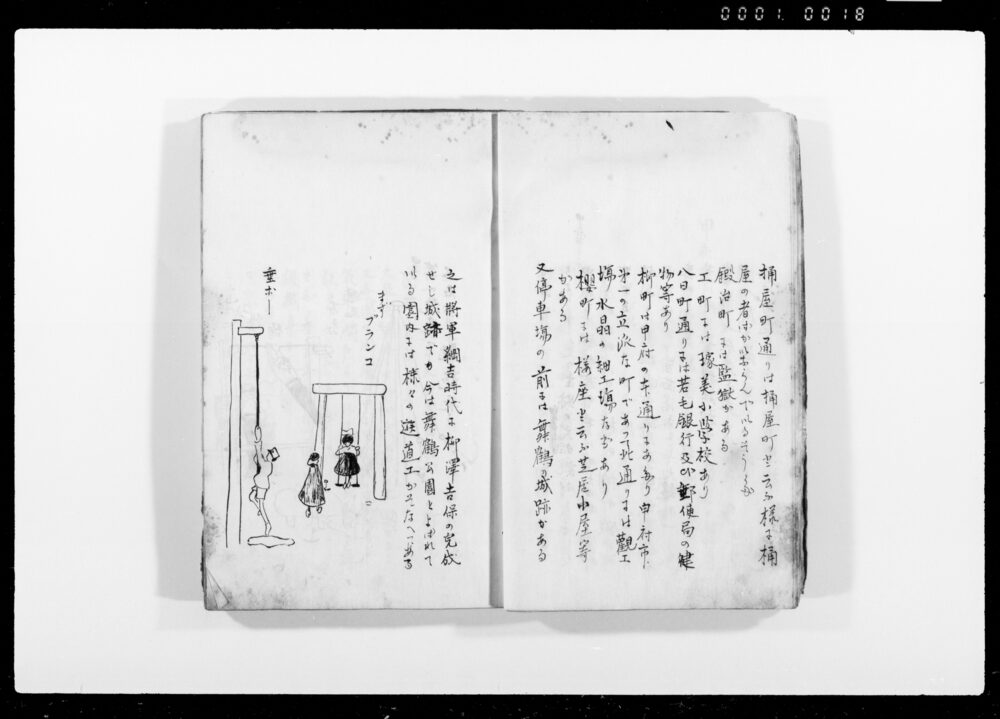 0001 0018
桶屋町通りは桶屋町と云ふ様に桶
屋の者ばかり
鍛冶町には監獄がある
工町には琢美小学校あり
八日町通りには若尾銀行及び郵便局の健
物等あり
柳町は甲府の本通りにあたり甲府市
第一の立派な町であって北通りには觀工
場水晶の細工場などあり
櫻町には桜座と云ふ芝居小屋等
がある
又停車場の前には舞鶴城跡がある
之は將軍綱吉時代に柳澤吉保の完成
せし城跡でが今は舞鶴公園とよばれて
いる園内には様々の遊道工がそなへつある
まず
ブランコ
垂ボー